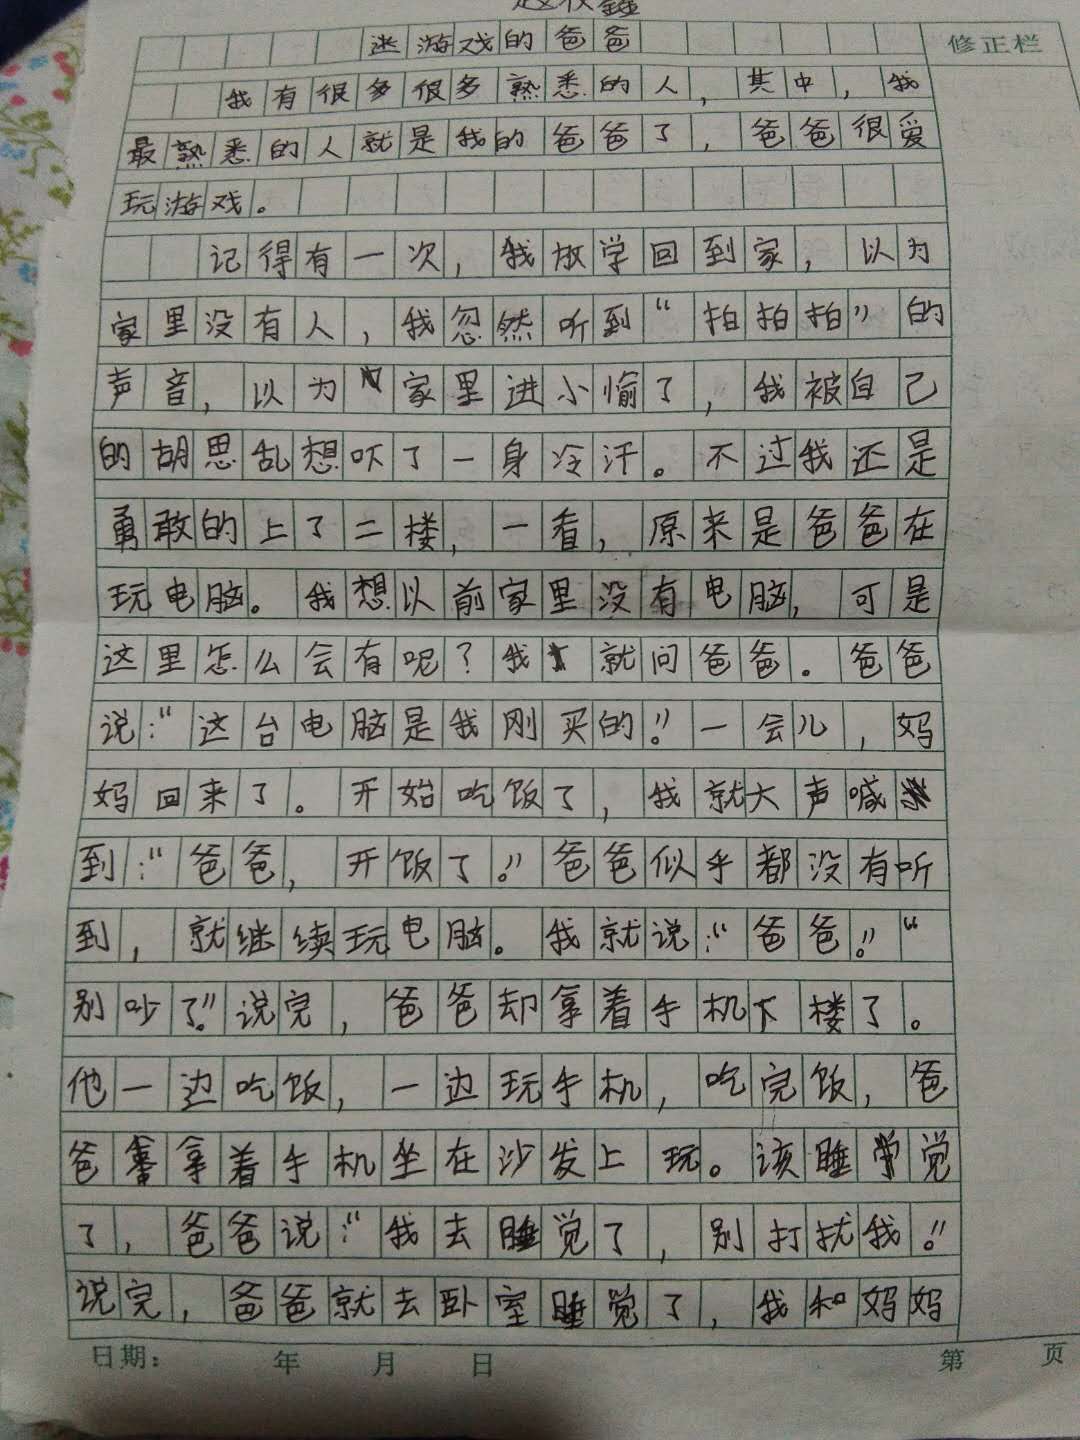 迷游戏的爸爸
修正栏
我有很多很多熟悉的人，其中，我
最熟悉的人就是我的爸爸了，爸爸很爱
玩游戏。
记得有一次，我放学回到家，以为
家里没有人，我忽然听到“拍拍拍”的
声音，以为家里进小愉了，我被自己
的胡思乱想吓了一身冷汗。不过我还是
勇敢的上了二楼，一看，原来是爸爸在
玩电脑。我想以前家里没有电脑，可是
这里怎么会有呢？我就问爸爸。爸爸
说：“这台电脑是我刚买的！”一会儿，妈
妈回来了。开始吃饭了，我就大声喊
到：“爸爸，开饭了！”爸爸似乎都没有听
到，就继续玩电脑。我就说：“爸爸！”“
别吵了！”说完，爸爸却拿着手机下楼了。
他一边吃饭，一边玩手机，吃完饭，爸
爸拿着手机坐在沙发上玩。该睡觉
了，爸爸说：“我去睡觉了，别打扰我！”
说完，爸爸就去卧室睡觉了，我和妈妈
日期： 年 月 日
第 页